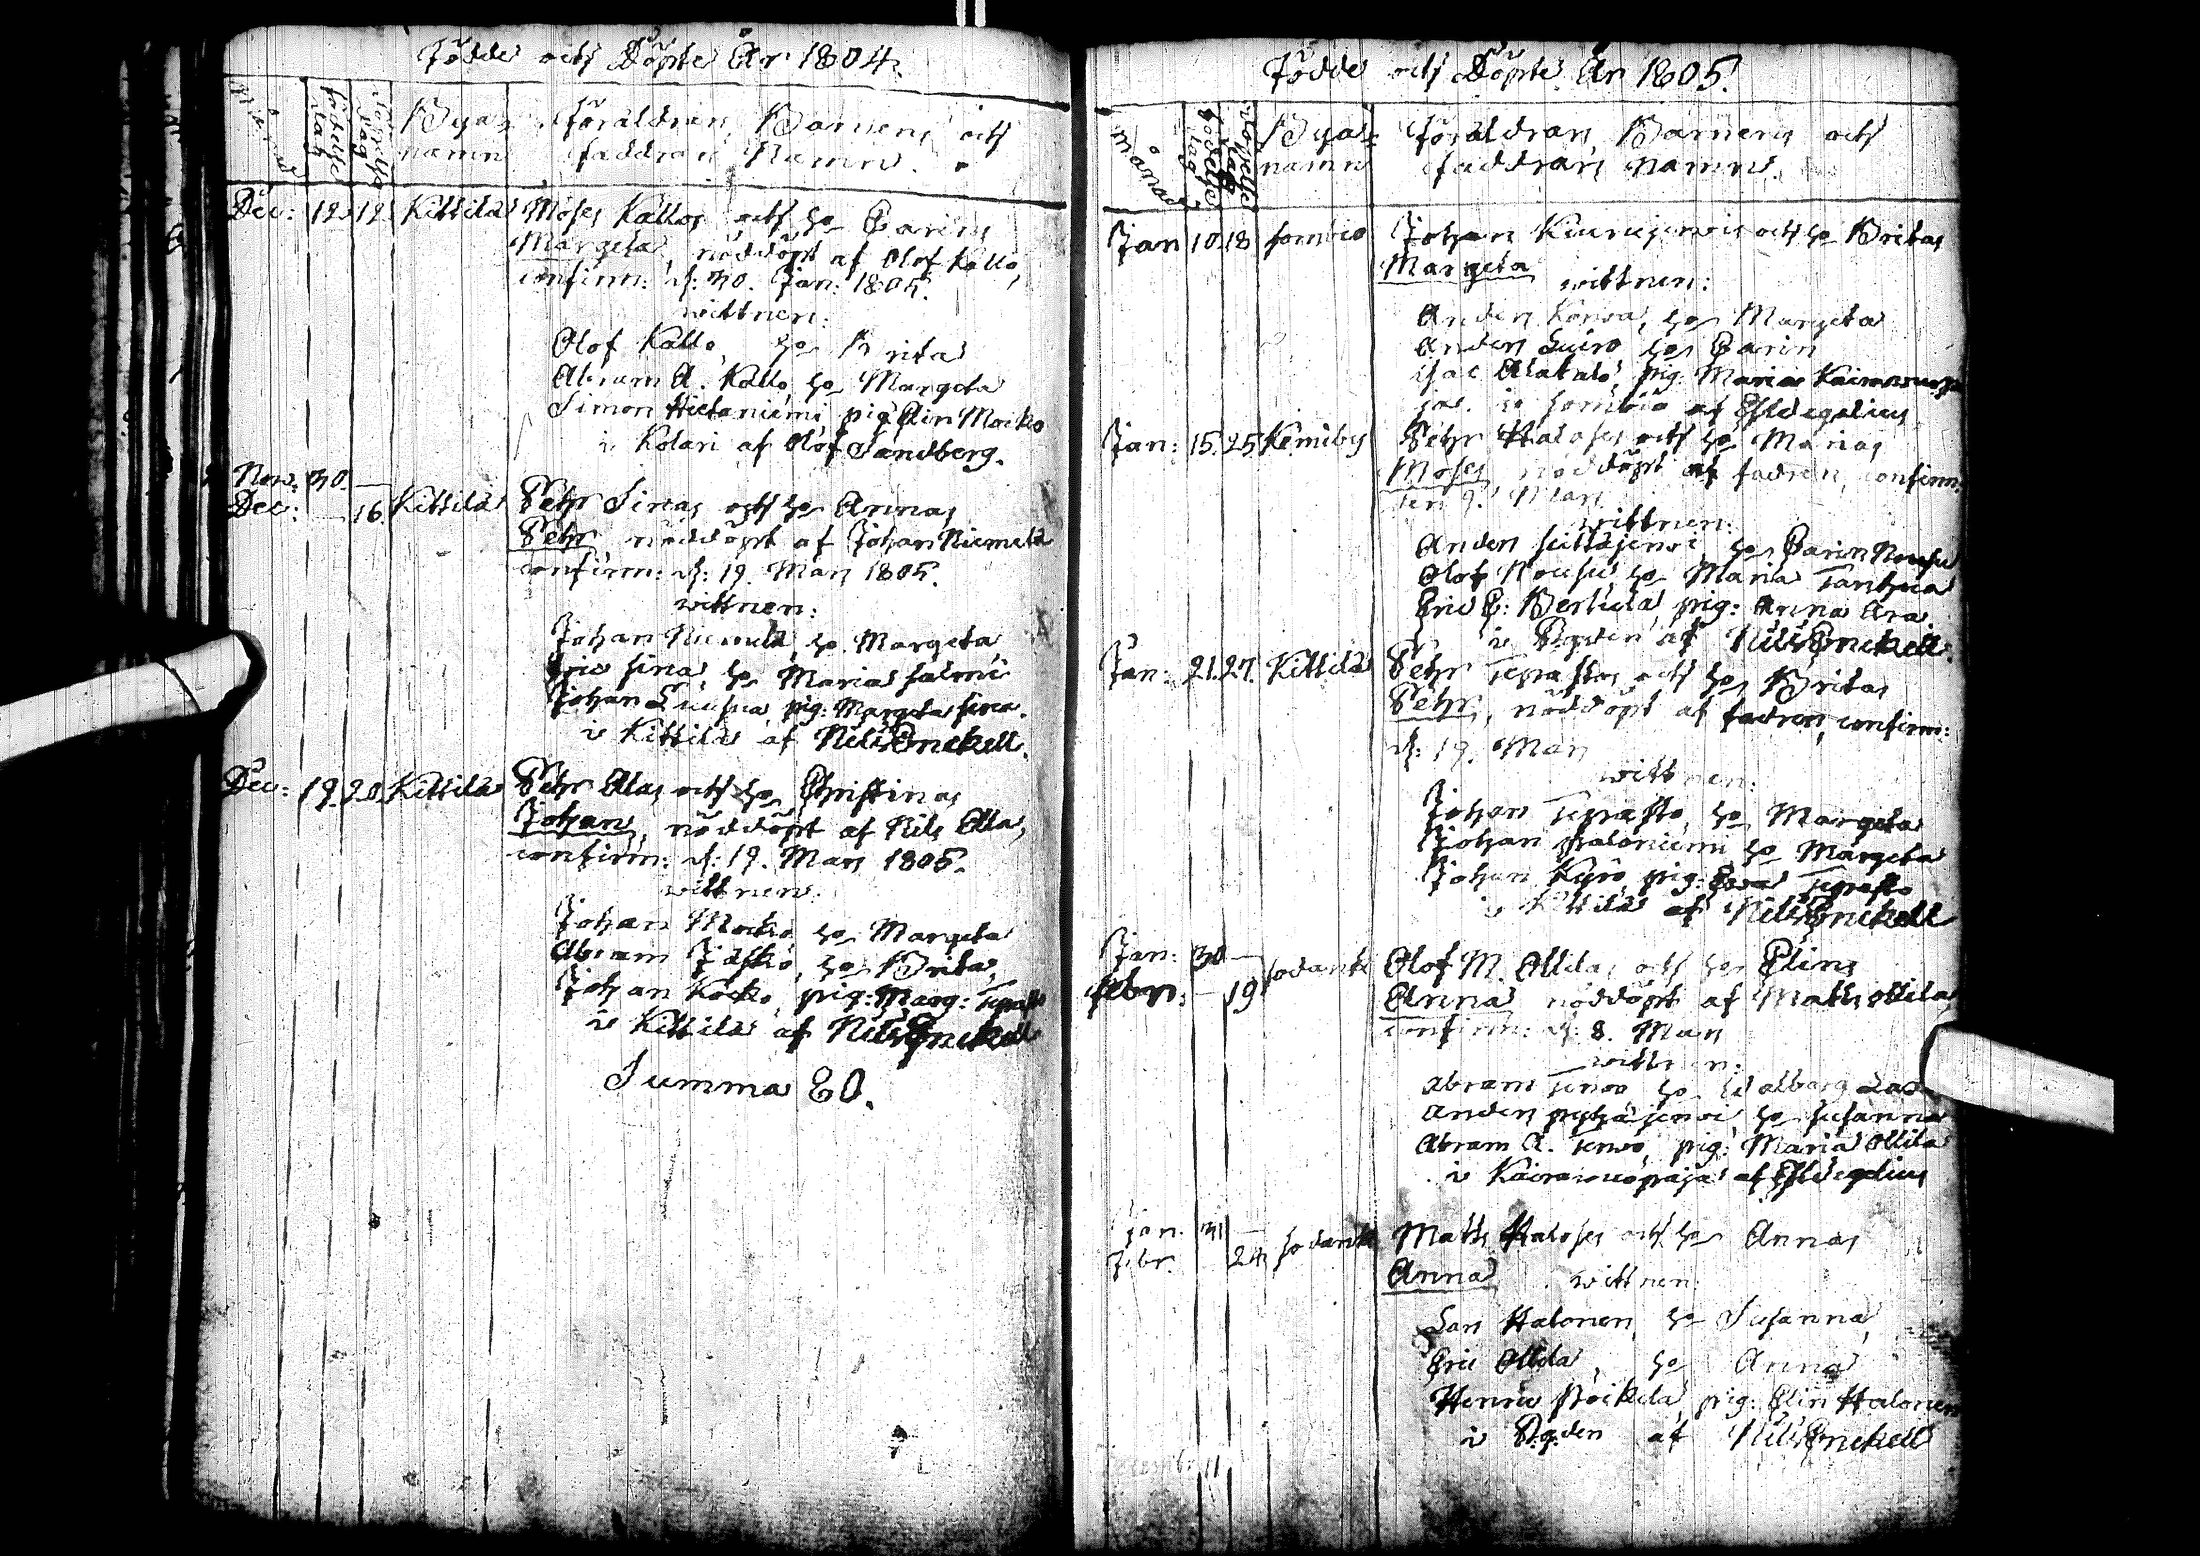 Födde och Döpte År 1804.
Månad
födelse dag
döpelse dag
Byar: namn
Föräldrars, Barnens och
faddrars Namn.
Dec: 12. 19. Kittilä Moses Kallos och ho Carins
Margeta, nöddöpt af Olof Kallo,
confirm: d: 30. Jan: 1805.
wittnen:
Olof Kallo, ho Brita
Abram A. Kallo, ho Margeta
Simon Hietaniemi pig. Elin Mocko
i Kolari af Olof Sandberg.
Nov: 30. —
Dec: — 16. Kittilä Pehr Siras och ho Annas
Pehr, nöddöpt af Johan Niemelä
confirm: d: 19. Mars 1805.
wittnen:
Johan Niemelä, ho Margeta,
Eric Sira, ho Maria Salmi
Johan pig: Margeta Sira.
i Kittilä af Nils Enckell.
Dec: 19. 20. Kittilä Pehr Allas och ho Christinas
Johan, nöddöpt af Nils Alla,
confirm: d: 19. Mars 1805.
wittnen:
Johan Mocko, ho Margeta
Abram Jäsko, ho Brita,
Johan Kocko, pig: Marg: Tepasto
i Kittilä af Nils Enckell
Summa 80.
Födde och Döpte År 1805.
månad
födelse dag
döpelse dag
Byar: namn
Föräldrars, Barnens och
faddrars namn.
Jan 10. 18 Sombio Johan Kiurujerwis och ho Britas
Margeta wittnen:
Anders ho Margeta
Anders Luiro ho Carin
Isac Alatalo, pig: Maria Kairawuopio
i Sombio af
Jan: 15. 25 Kemiby Pehr Haloses och ho Marias
Moses, nöddöpt af fadren, confirm:
den 9. Mars
wittnen:
Anders Seittäjerwi, ho Carin Nousu
Olof Nousu, ho Maria Tanhua
Eric E: pig: Anna Ara
i Sgden af Nils Enckell.
Jan: 21. 27. Kittilä Pehr Tepastos och ho Britas
Pehr, nöddöpt af fadren, confirm:
d: 19. Mars
wittnen:
Johan Tepasto, ho Margeta
Johan Paloniemi ho Margeta
Johan Kyrö, pig: Ewa Tepasto
i Kittilä af Nils Enckell
Jan: 30 —
Febr: — 19 Sodank Olof M. Ollilas och ho Elins
Anna nöddöpt af Mats Ollila
confirm: d: 8. Mars
wittnen:
Abram Terwo ho Walborg
Anders Pyhäjerwi, ho Susanna
Abram A. Terwo, pig: Maria Ollila
i Kairawuopaja af
Jan. 31 —
Febr. 24 Sodank Mats Haloses och ho Annas
Anna wittnen:
Lars Halonen, ho Susanna,
Eric Ollila, ho Anna
Henric Pöickilä, pig: Elin Halonen
i Sgden af Nils Enckell